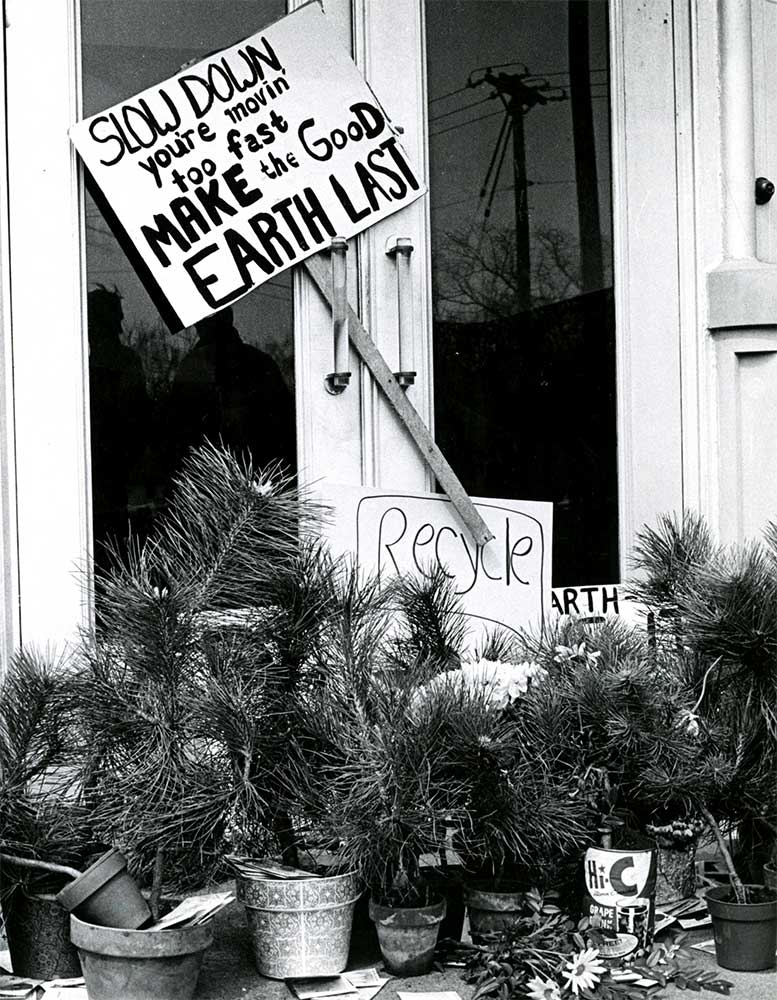 SLOW DOWN
you're movin'
too fast
MAKE the GOOD
EARTH LAST
Recycle
ARTH
Hi-C
GRAPE